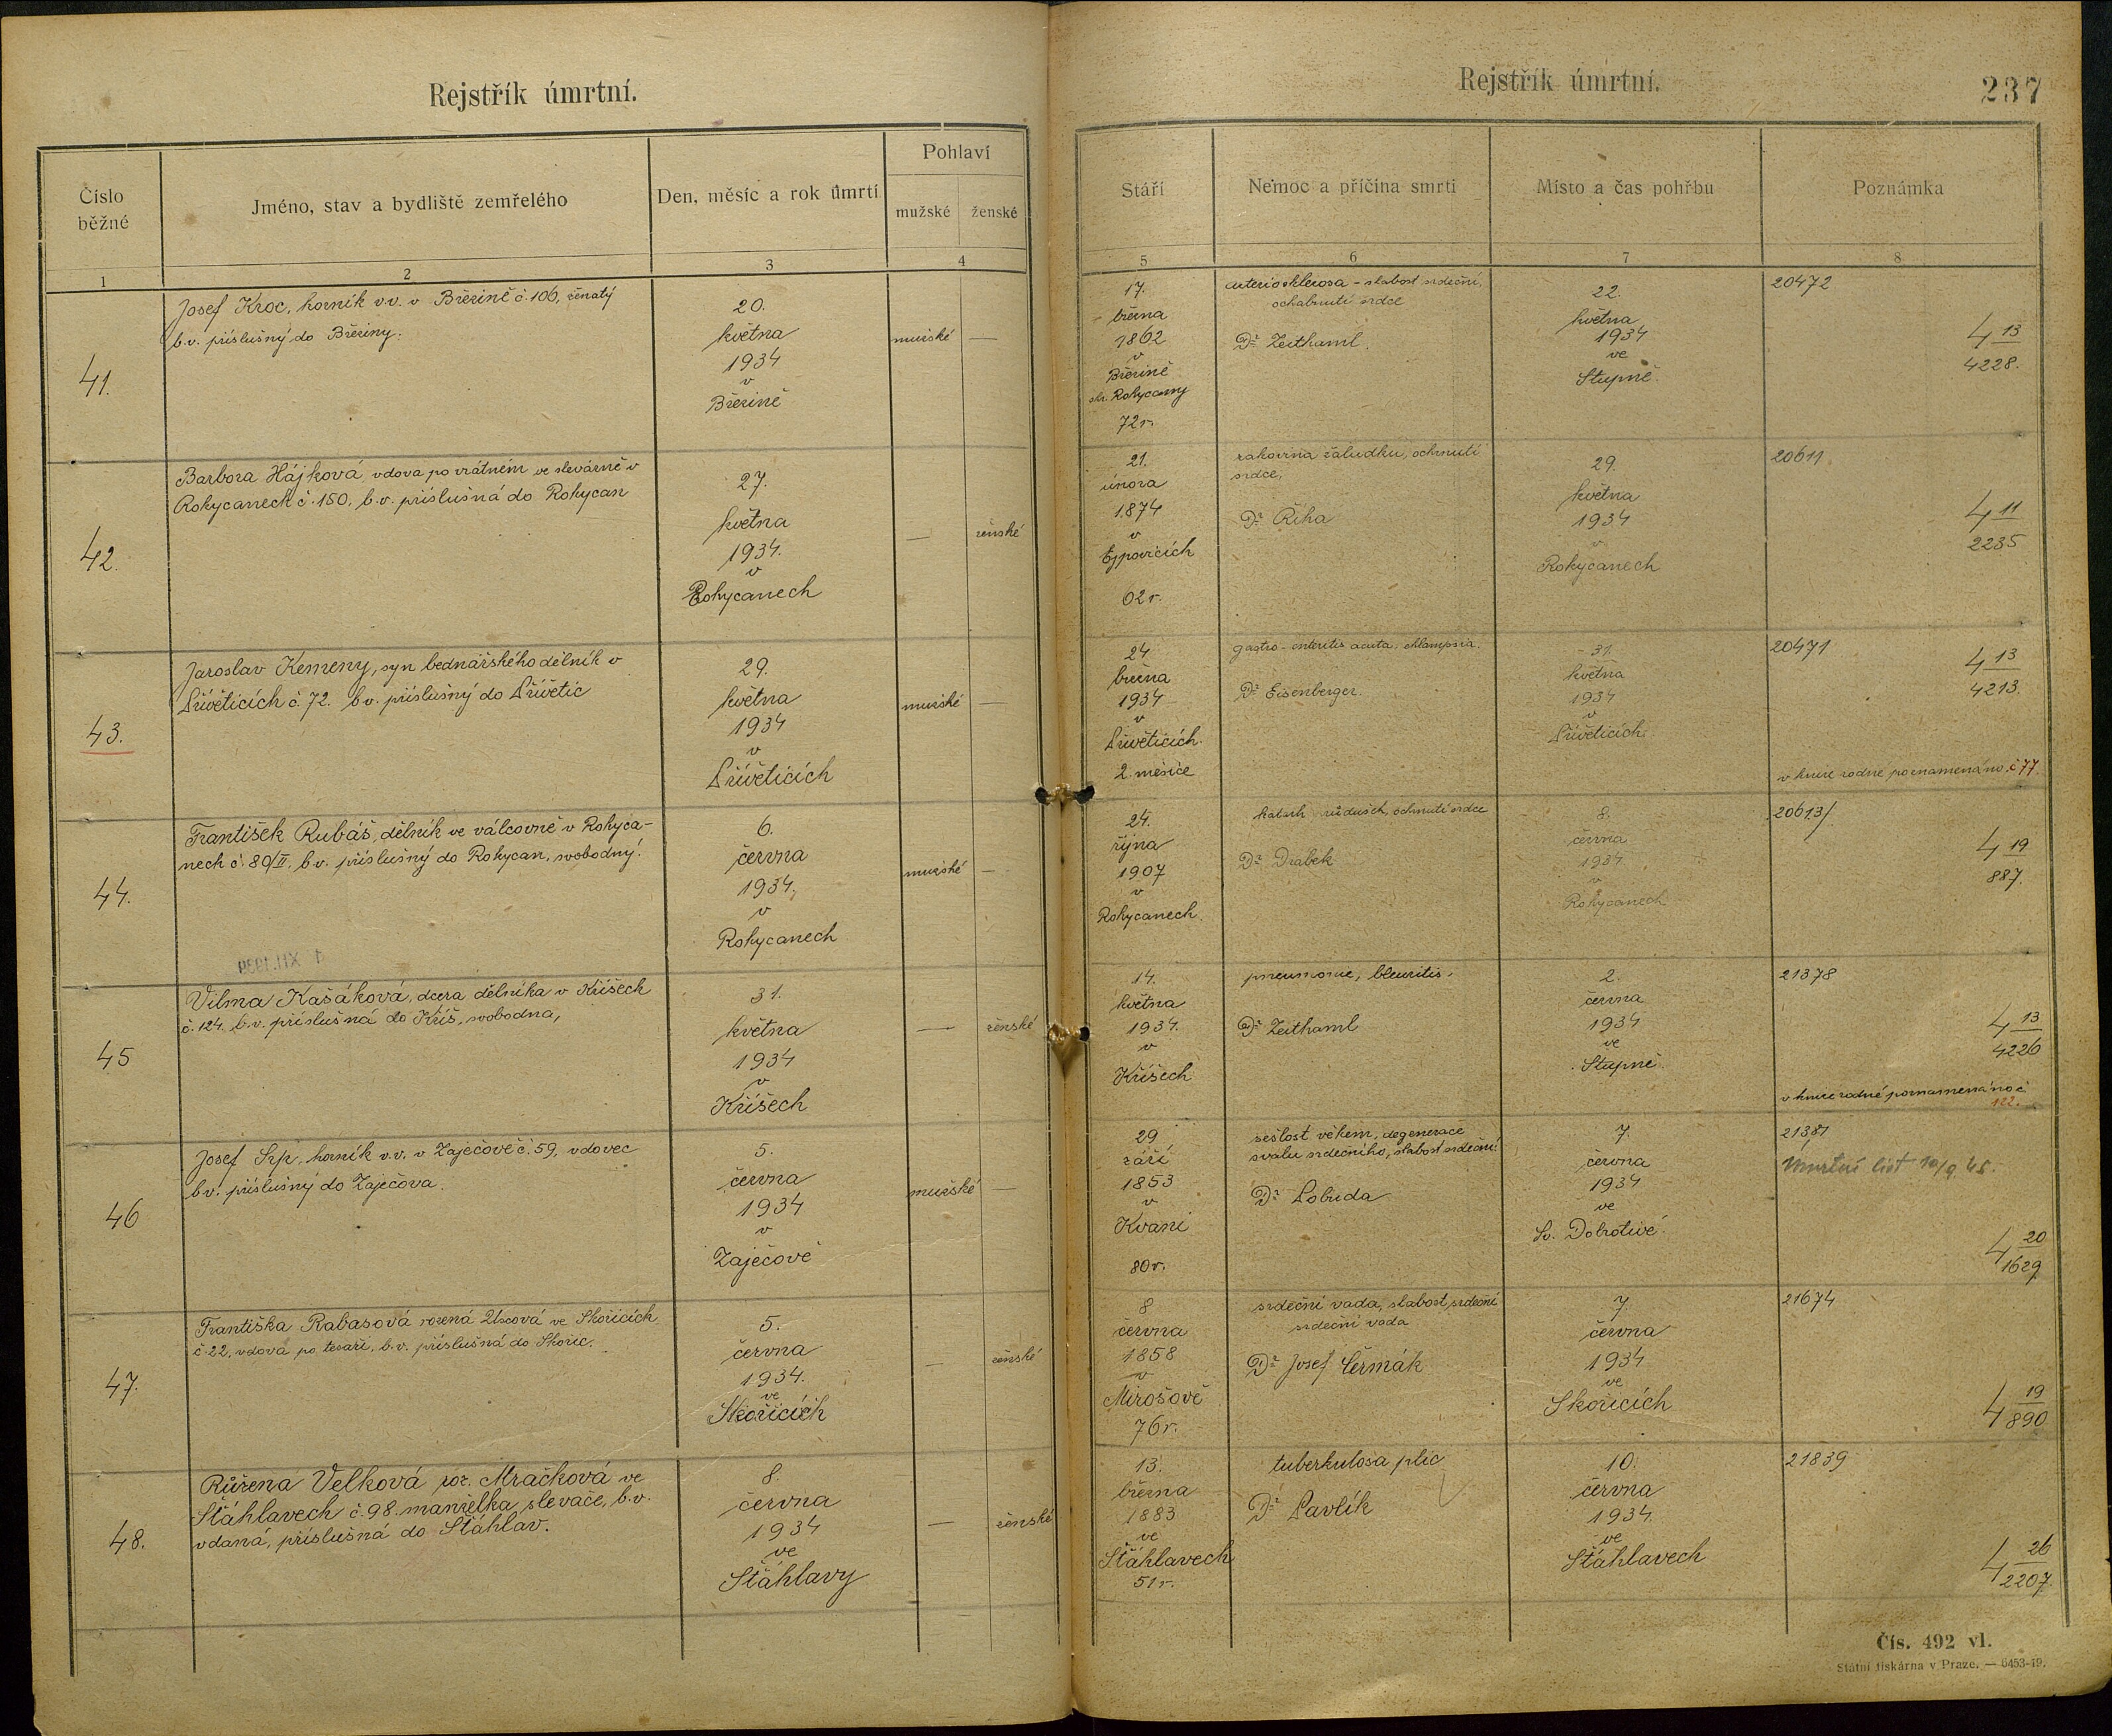 Rejstřík úmrtní.
Číslo běžné
Jméno, stav a bydliště zemřelého
Den, měsíc a rok úmrtí
Pohlaví
mužské
ženské
1
2
3
4
41.
Josef Kroc, horník v.v. v Březině č. 106, ženatý
b.v. příslušný do Březiny.
20.
května
1934
v
Březině
mužské
—
42.
Barbora Hájková, vdova po vrátném ve slevárně v
Rokycanech č. 150, b.v. příslušná do Rokycan
27.
května
1934.
v
Rokycanech
—
ženské
43.
Jaroslav Kemeny, syn bednářského dělník v
Přívěticích č. 72. b.v. příslušný do Přívětic
29.
května
1934
v
Přívěticích
mužské
—
44.
František Rubáš, dělník ve válcovně v Rokyca-
nech č. 80/II. b.v. příslušný do Rokycan, svobodný.
6.
června
1934.
v
Rokycanech
mužské
—
45
Vilma Kašáková, dcera dělníka v Kříšech
č. 124. b.v. příslušná do Kříš, svobodna,
31.
května
1934
v
Kříšech
—
ženské
46
Josef Srp, horník v.v. v Zaječově č. 59, vdovec
b.v. příslušný do Zaječova.
5.
června
1934
v
Zaječově
mužské
—
47.
Františka Rabasová rozená ve Skořicích
č. 22, vdova po tesaři, b.v. příslušná do Skořic.
5.
června
1934.
ve
Skořicích
—
ženské
48.
Růžena Velková roz. Mračková ve
Šťáhlavech č. 98. manželka slevače, b.v.
vdaná, příslušná do Šťáhlav.
8.
června
1934
ve
Šťáhlavy
—
ženské
Rejstřík úmrtní.
237
Stáří
Nemoc a příčina smrti
Místo a čas pohřbu
Poznámka
5
6
7
8
17.
března
1862
v
Březině
okr. Rokycany
72 r.
arteriosklerosa - slabost srdeční,
ochabnutí srdce
Dr Zeithaml.
22.
května
1934
ve
Stupně.
20472
4 13
4228.
21.
února
1874
v
Ejpovicích
62 r.
rakovina žaludku, ochrnutí
srdce,
Dr Říha
29.
května
1934
v
Rokycanech
20611
4 11
2235
24
března
1934
v
Přívěticích.
2. měsíce
gastro-enteritis acuta, eklampsia.
Dr Eisenberger.
31.
května
1934
v
Přívěticích.
20471
4 13
4213.
v knize rodné poznamenáno. č 77
24.
října
1907
v
Rokycanech.
katarh průdušek, ochrnutí srdce
Dr Drábek
8.
června
1934.
v
Rokycanech
20613/
4 19
887.
14.
května
1934.
v
Kříšech
pneumonie, pleuritis.
Dr Zeithaml
2.
června
1934
ve
Stupně.
21378
4 13
4226
v knize rodné poznamenáno č
122.
29
září
1853
v
Kvani
80 r.
sešlost věkem, degenerace
svalu srdečního, slabost srdeční.
Dr Lobuda
7.
června
1934
ve
Sv. Dobrotivé.
21381
Úmrtní list 10/9 45.
4 20
1629
8
června
1858
v
Mirošově
76 r.
srdeční vada, slabost srdeční
srdeční vada
Dr Josef Čermák
7.
června
1934
ve
Skořicích
21674
4 19
890
13.
března
1883
ve
Šťáhlavech
51 r.
tuberkulosa plic
Dr Pavlík
10.
června
1934.
ve
Šťáhlavech
21839
4 26
2207.
Čís. 492 vl.
Státní tiskárna v Praze. — 6453-19.